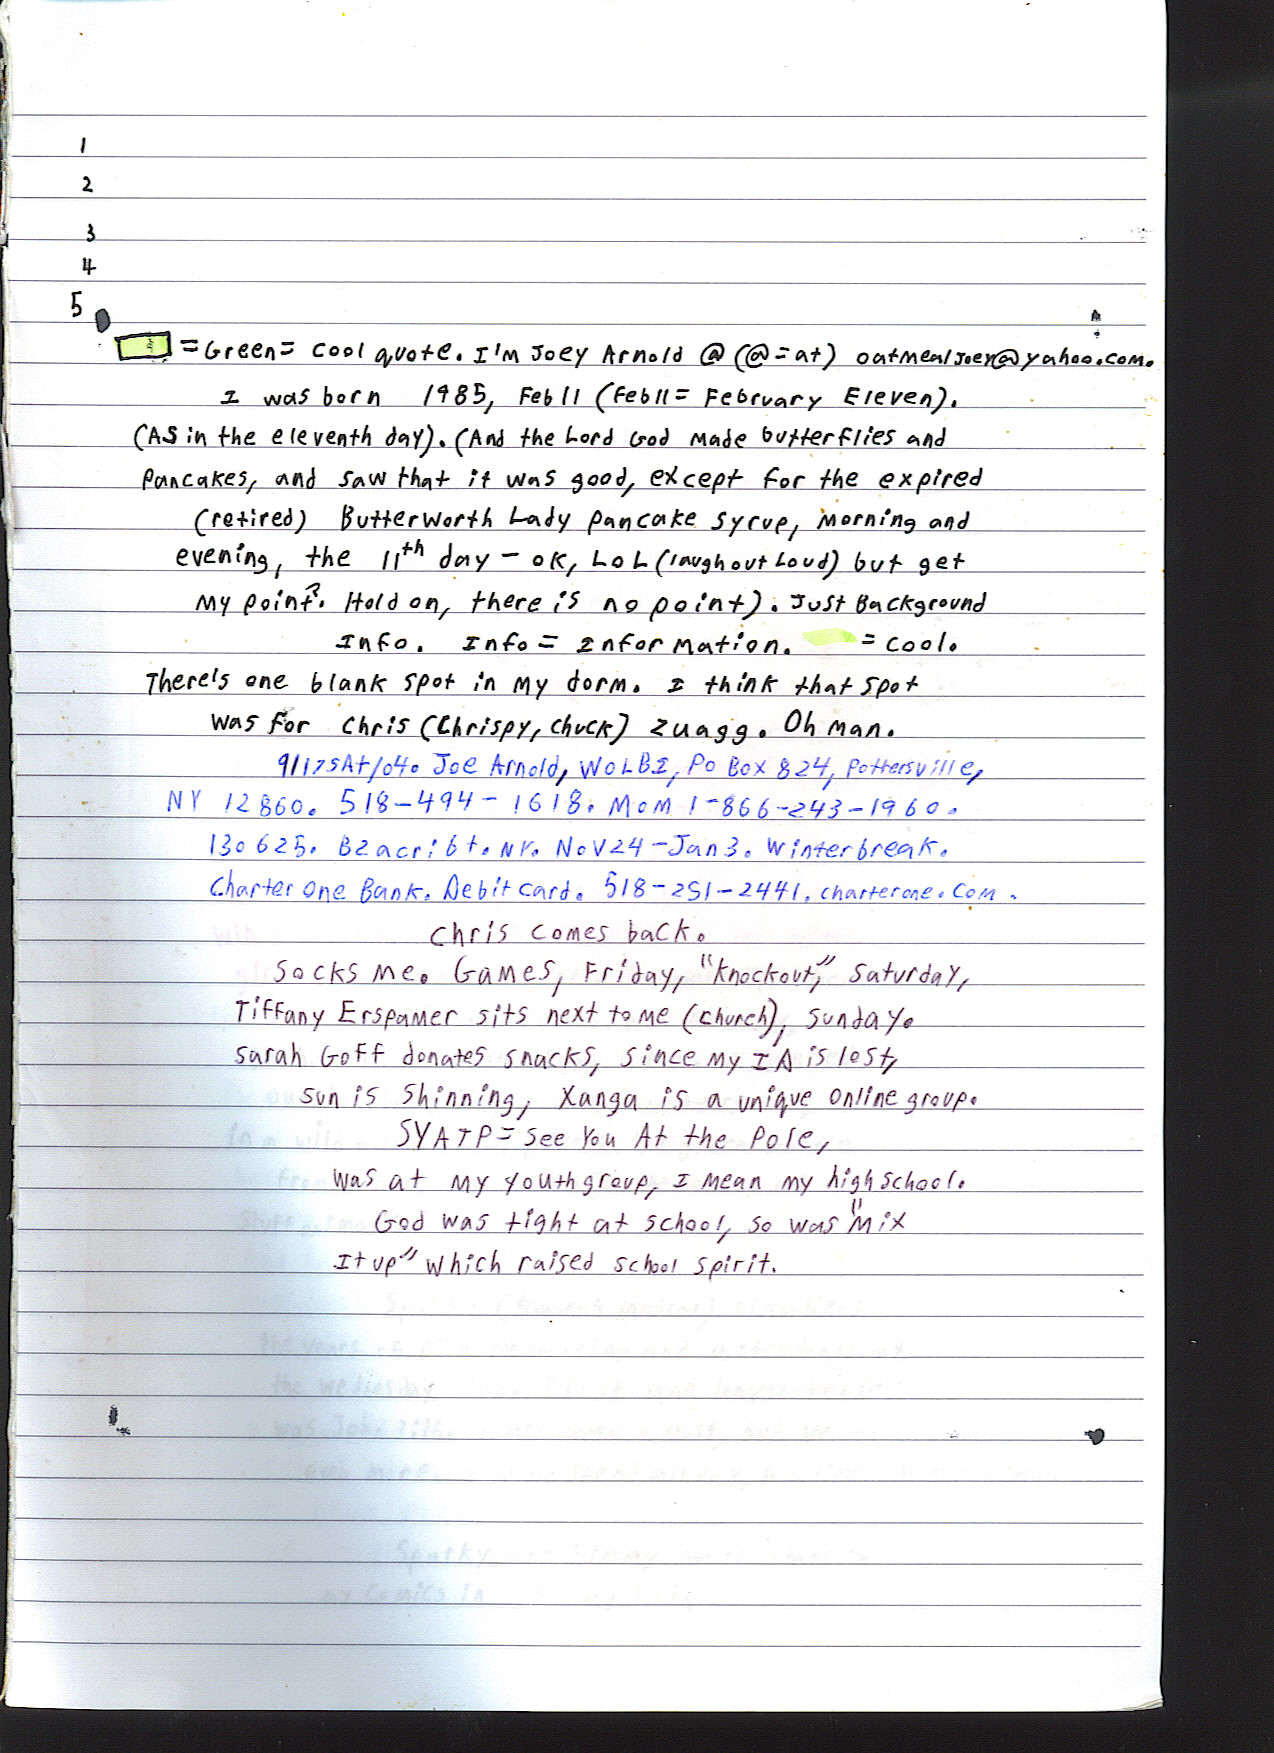 1
2
3
4
5
=Green= cool quote. I'm Joey Arnold @ (@=at) oatmealJoey@yahoo.com.
I was born 1985, Feb 11 (Feb 11 = February Eleven).
(AS in the eleventh day). (And the Lord God made butterflies and
Pancakes, and saw that it was good, except for the expired
(retired) Butterworth Lady pancake syrup, Morning and
evening, the 11th day - OK, LOL (laugh out Loud) but get
My point? Hold on, there is no point). Just Background
Info. Info = Information. = cool.
There's one blank spot in my dorm. I think that spot
was for Chris (Chrispy, Chuck) Zuagg. Oh man.
9/17SAt/04. Joe Arnold, WOLBI, Po Box 824, Pottersville,
NY 12860. 518-494-1618. Mom 1-866-243-1960.
130625. B2acribt. NY. Nov24-Jan3. Winter break.
Charter One Bank. Debit card. 518-251-2441. charterone.com.
Chris comes back.
Socks Me. Games, Friday, "Knockout," Saturday,
Tiffany Erspamer sits next to me (church), Sunday.
Sarah Goff donates snacks, since my IA is lost,
Sun is Shinning, Xanga is a unique online group.
SYATP = See You At the Pole,
was at my youthgroup, I mean my high school.
God was tight at school, so was "Mix
It up" which raised school spirit.